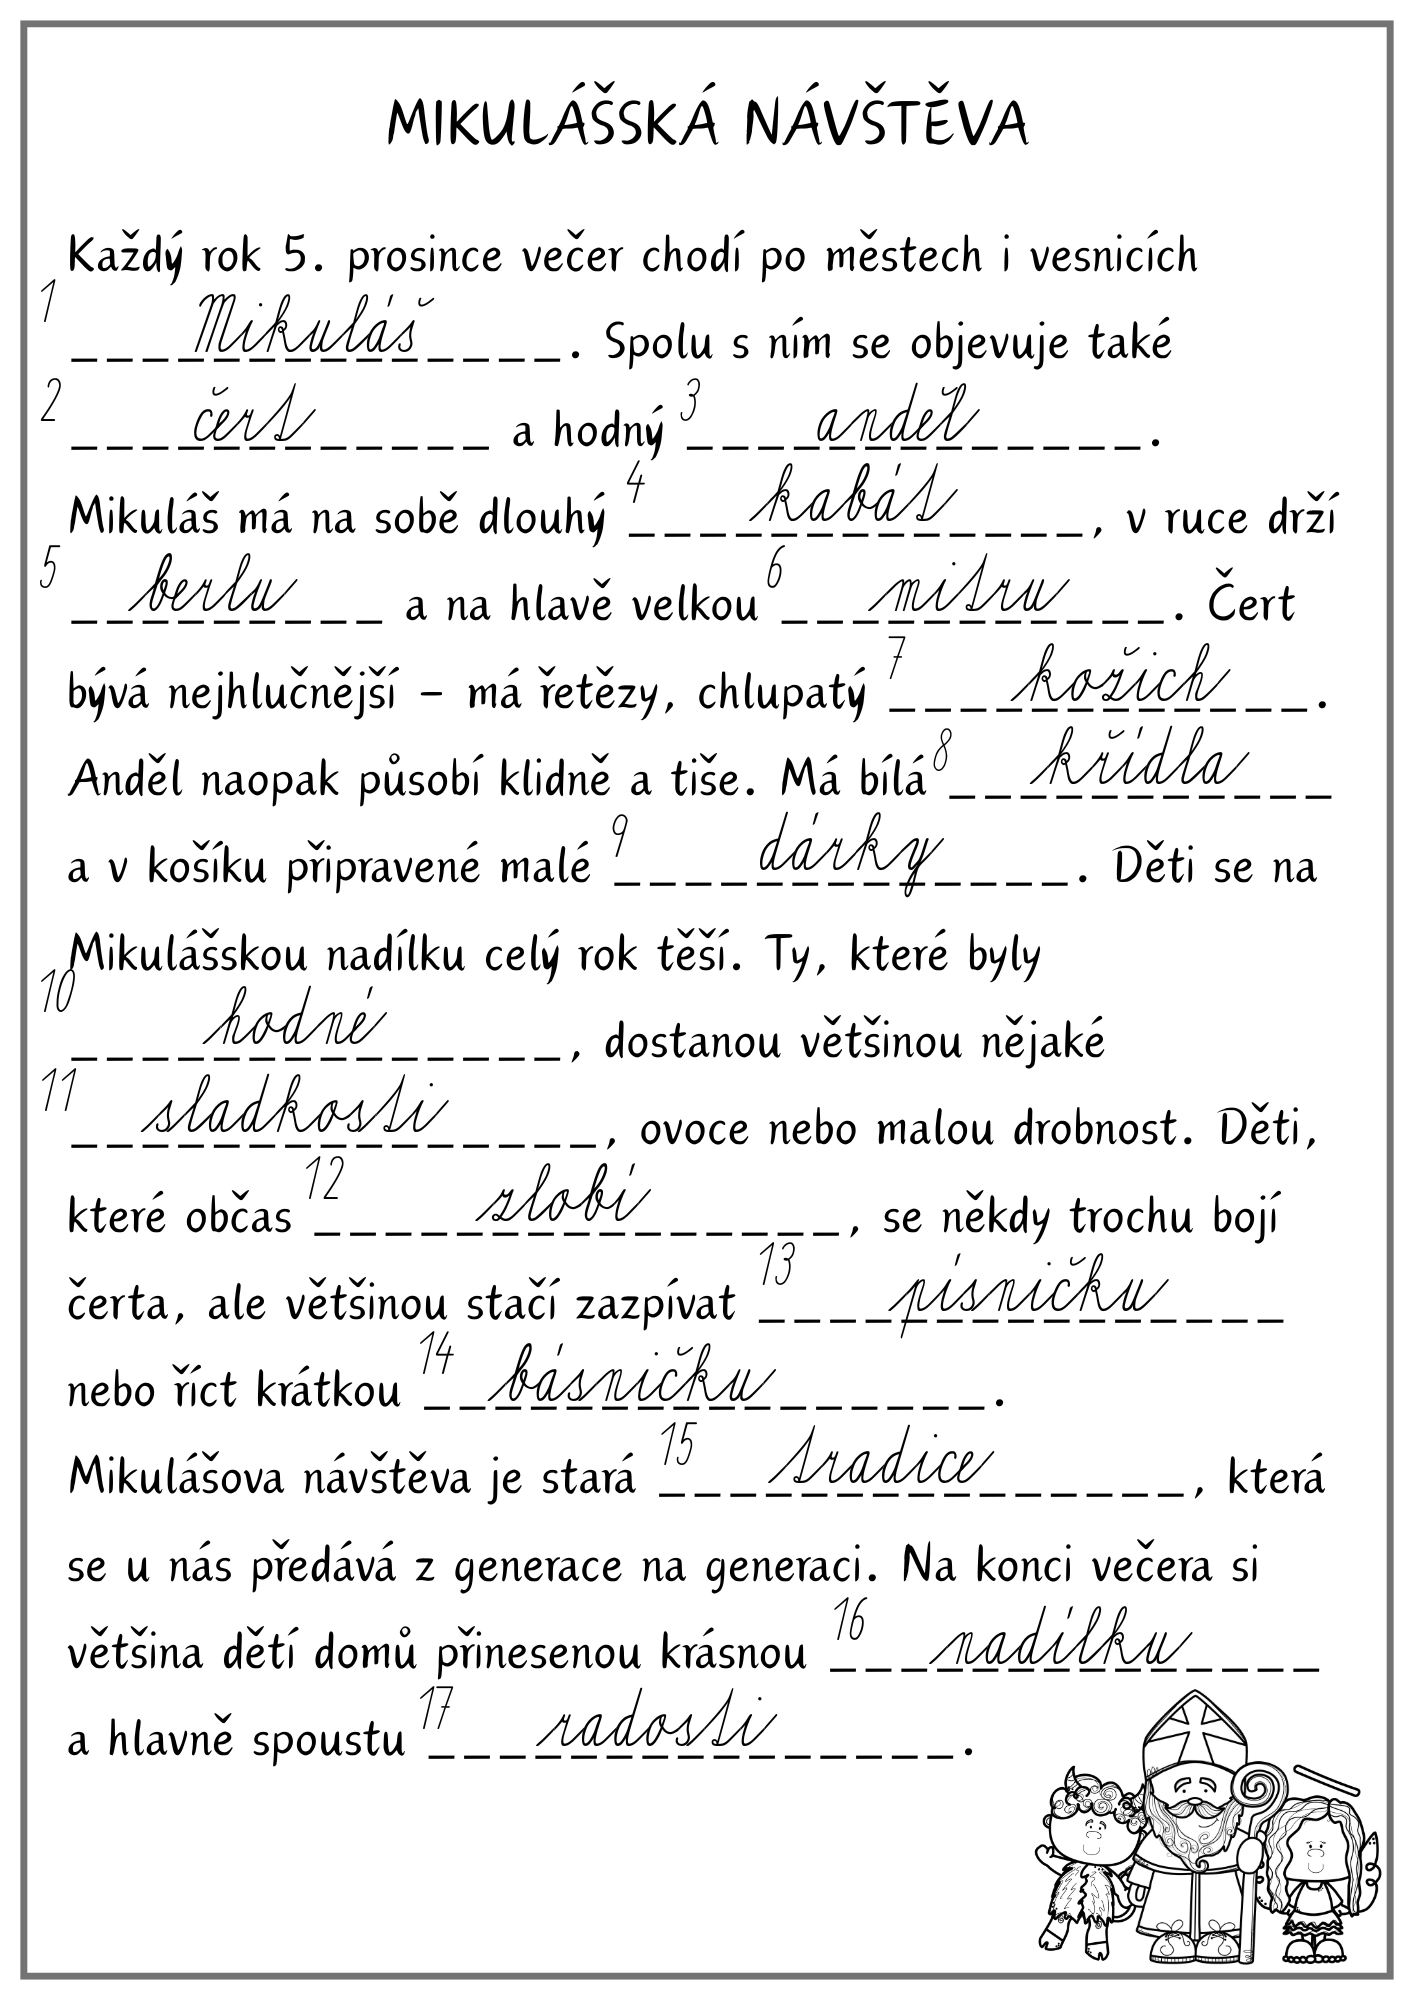 MIKULÁŠSKÁ NÁVŠTĚVA
Každý rok 5. prosince večer chodí po městech i vesnicích
1 Mikuláš. Spolu s ním se objevuje také
2 čert a hodný 3 anděl.
Mikuláš má na sobě dlouhý 4 kabát, v ruce drží
5 berlu a na hlavě velkou 6 mitru. Čert
bývá nejhlučnější – má řetězy, chlupatý 7 kožich.
Anděl naopak působí klidně a tiše. Má bílá 8 křídla
a v košíku připravené malé 9 dárky. Děti se na
Mikulášskou nadílku celý rok těší. Ty, které byly
10 hodné, dostanou většinou nějaké
11 sladkosti, ovoce nebo malou drobnost. Děti,
které občas 12 zlobí, se někdy trochu bojí
čerta, ale většinou stačí zazpívat 13 písničku
nebo říct krátkou 14 básničku.
Mikulášova návštěva je stará 15 tradice, která
se u nás předává z generace na generaci. Na konci večera si
většina dětí domů přinesenou krásnou 16 nadílku
a hlavně spoustu 17 radosti.